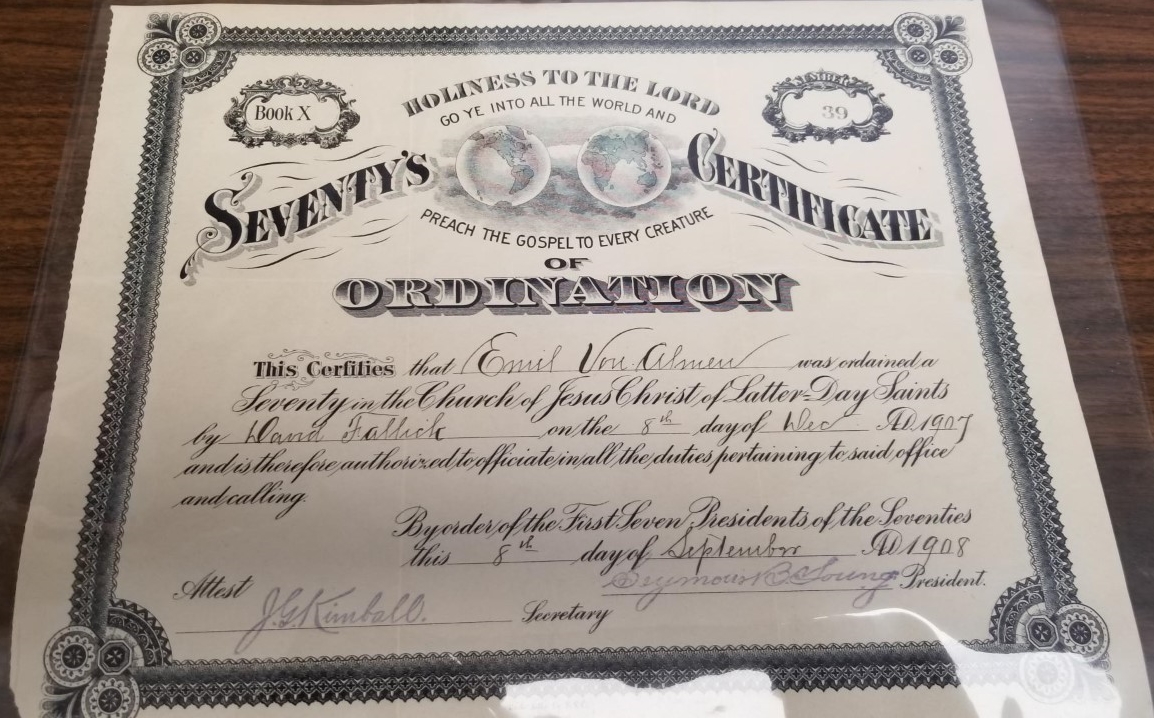 Book X
39
HOLINESS TO THE LORD
GO YE INTO ALL THE WORLD AND
SEVENTY'S CERTIFICATE
PREACH THE GOSPEL TO EVERY CREATURE
OF
ORDINATION
This Certifies that Emil Von Almen was ordained a
Seventy in the Church of Jesus Christ of Latter-Day Saints
by David Fallick on the 8th day of Dec AD 1907
and is therefore authorized to officiate in all the duties pertaining to said office
and calling.
By order of the First Seven Presidents of the Seventies
this 8th day of September AD 1908
Seymour B Young President.
Attest
J. G. Kimball. Secretary